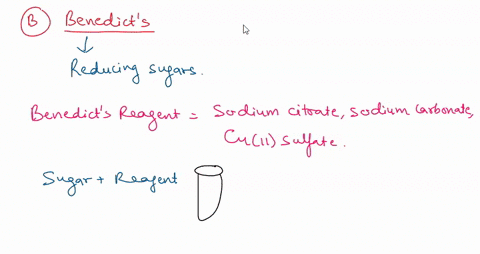 B Benedict's
Reducing sugars.
Benedict's Reagent = Sodium citrate, sodium carbonate,
Cu(11) Sulfate.
Sugar + Reagent